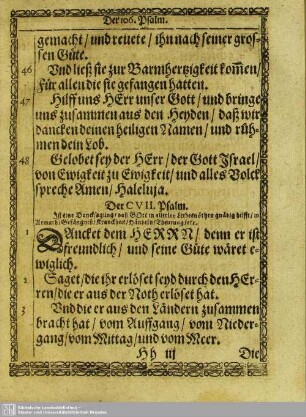 Der 106. Psalm.
gemacht / und reuete / ihn nach seiner gros-
sen Güte.
46 Vnd ließ sie zur Barmhertzigkeit kom̃en /
Für allen die sie gefangen hatten.
47 Hilff uns HErr unser Gott / und bringe
uns zusammen aus den Heyden / daß wir
dancken deinen heiligen Namen / und rüh-
men dein Lob.
48 Gelobet sey der HErr / der Gott Israel
von Ewigkeit zu Ewigkeit / und alles Volck
spreche Amen / Haleluja.
Der CVII. Psalm.
1 DAncket dem HERRN / denn er ist
freundlich / und seine Güte wäret e-
wiglich.
2 Saget / die ihr erlöset seyd durch den HEr-
ren / die er aus der Noth erlöset hat.
3 Vnd die er aus den Ländern zusammen
bracht hat / vom Auffgang / vom Nieder-
gang / vom Mittag / und vom Meer.
Hh iij Die